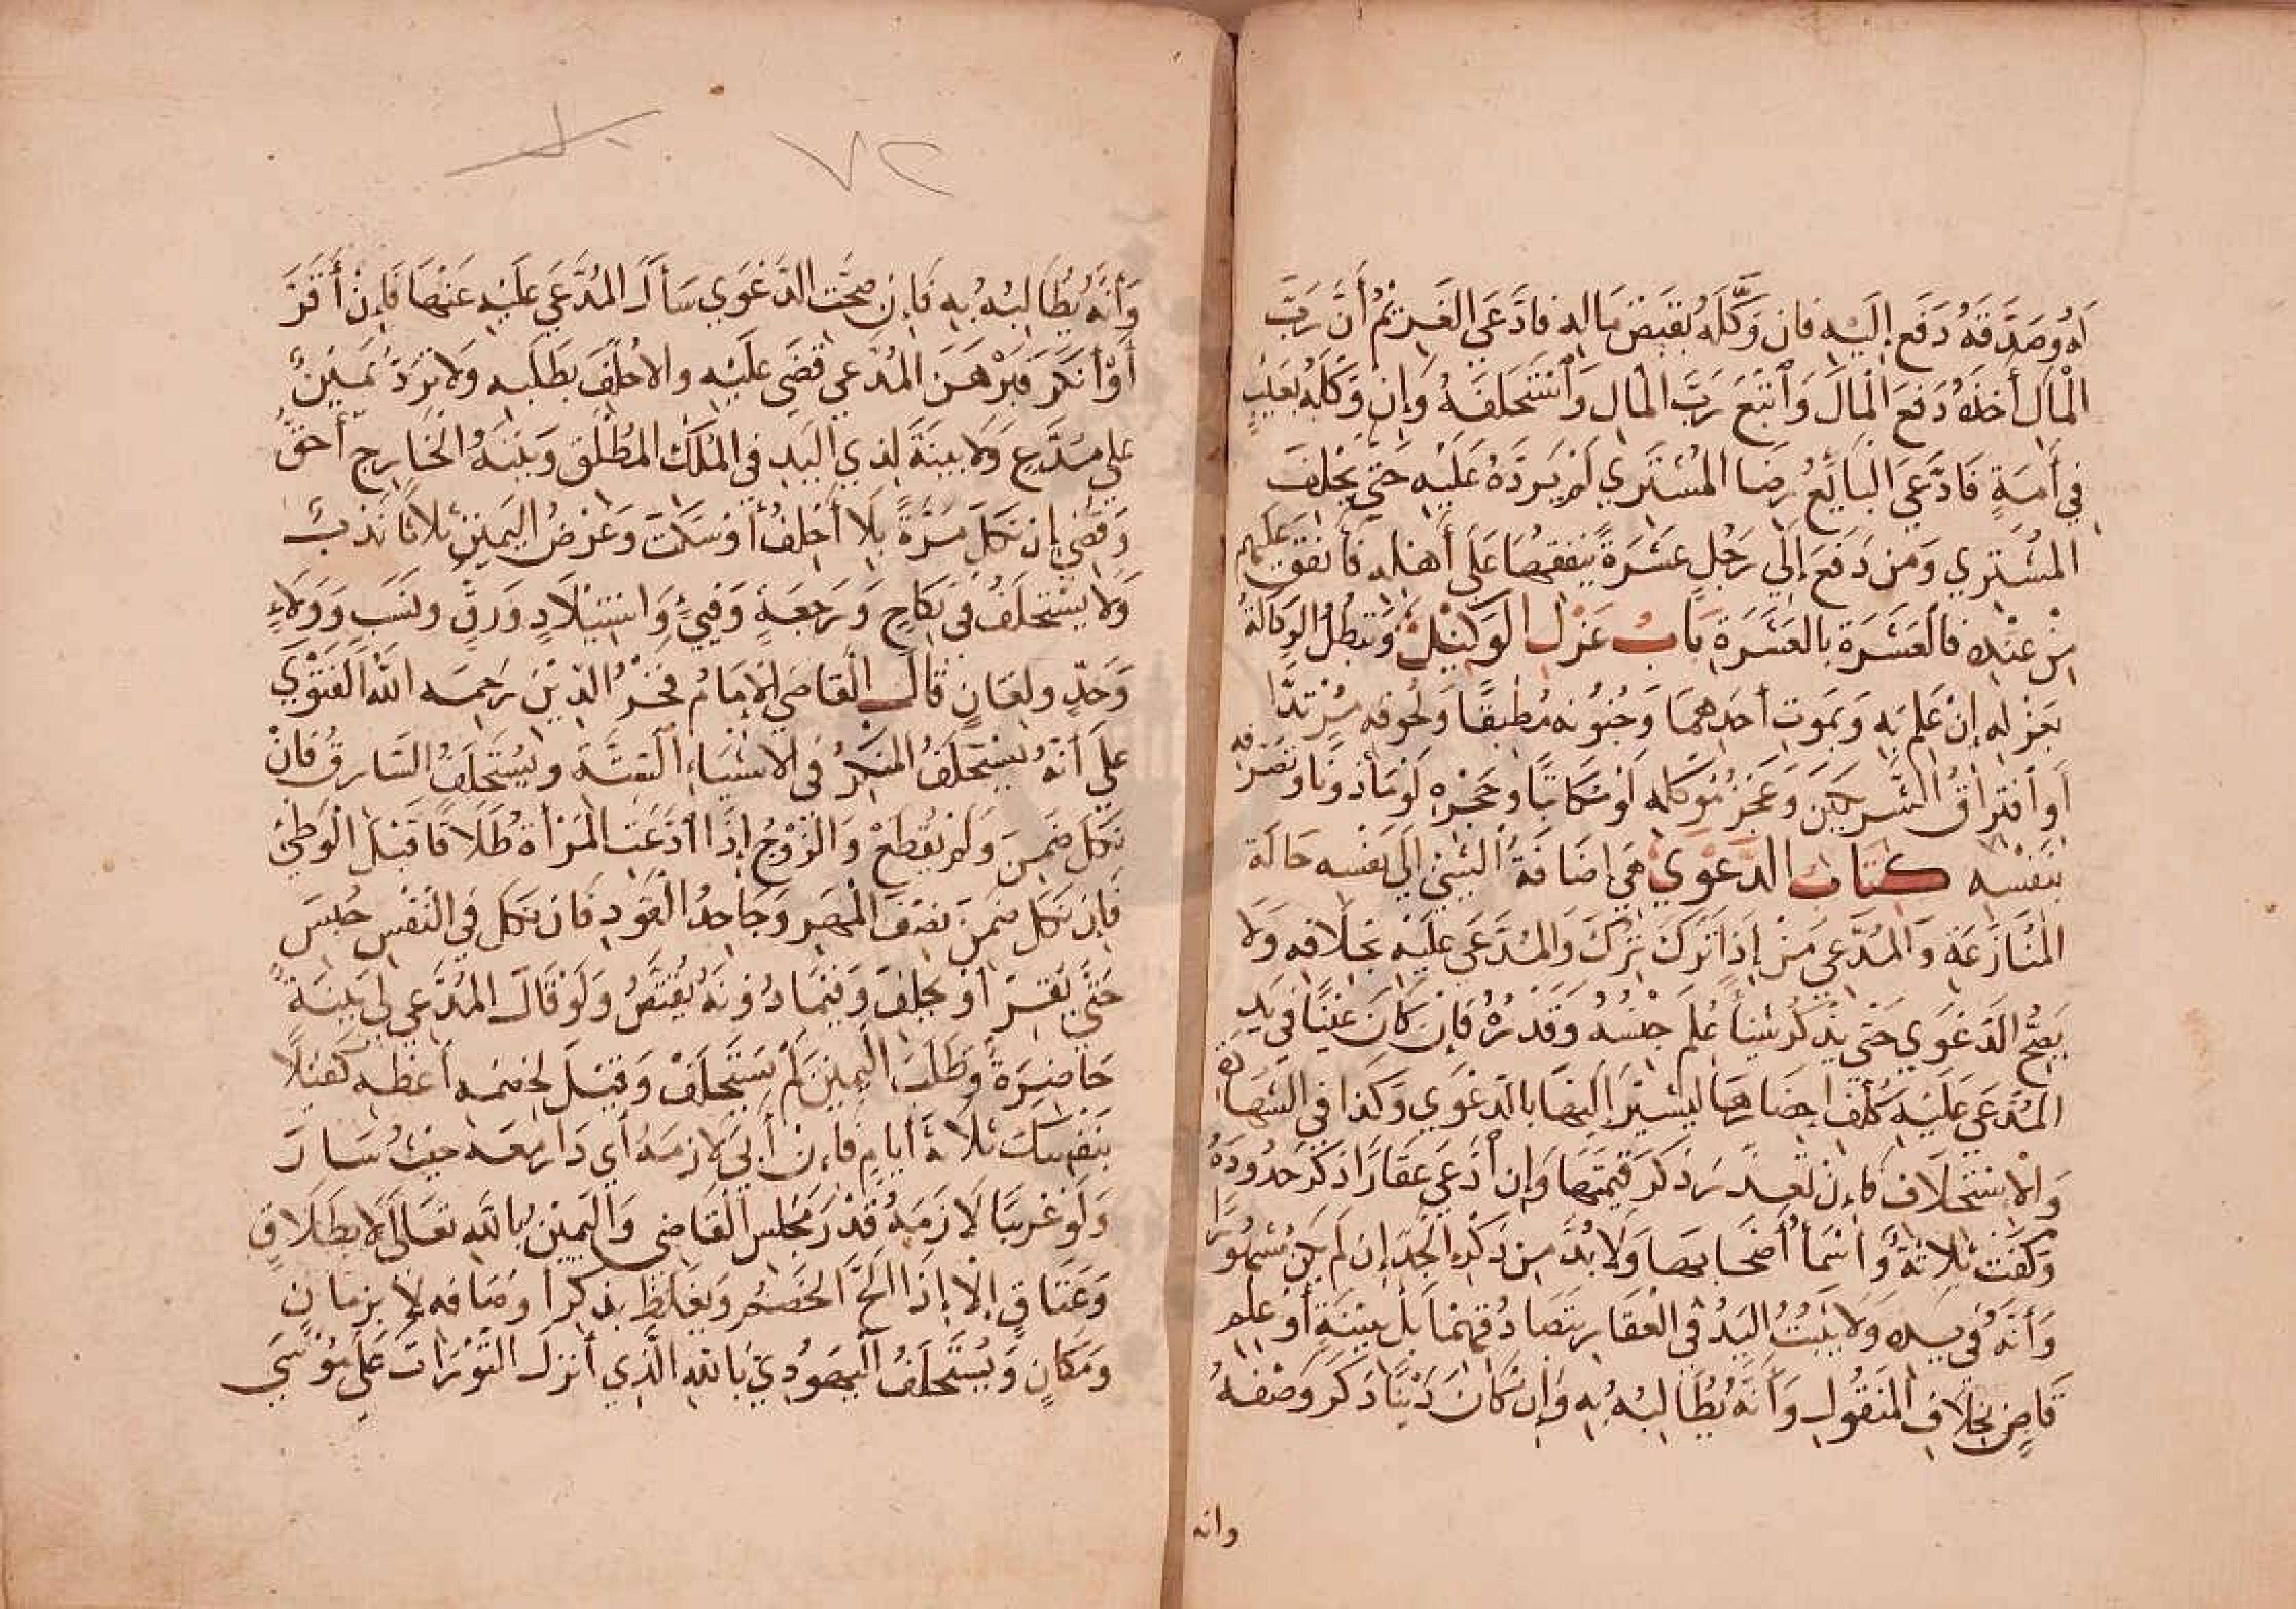 لَهُ وصَدَّقَهُ دَفَع إلَيْهِ فان وَكَّلَهُ بقَبْضِ مَالِهِ فادَّعَي الغَرِيْمُ أَنَّ رَبَّ
الْمَالِ أخذَهُ دَفَعَ الْمَالَ وَاتْبَعَ رَبَّ الْمَالِ وَاسْتَحْلَفَهُ وَإِن وَكَّلَهُ بعَيْبٍ
في أَمَةٍ فَادَّعَي البَائعُ رِضَا المُشْتَرِي لَمْ يَرُدَّهُ عَلَيْهِ حَتَّي يَحْلِفَ
المُشْتَرِي وَمَن دَفَعَ إِلَي رَجُلٍ عَشَرَةً يُنْفِقهَا عَلَى أَهْلِهِ فَأَنفَقَ عليهم
مِنْ عِنْدِهِ فالعَشَرَة بالعَشَرَةِ بَابُ عَزْلِ الوَكِيْلِ وَتَبْطُلُ الوَكَالةُ
بعَزْلِهِ إِنْ عَلِمَ بِهِ وَبمَوتِ أحَدِهِمَا وَجُنُونِهِ مُطْبِقًا وَلحُوقِهِ مُرْتدًّا
أَو افْتِرَاقُ الشَّرِيكَيْنِ وَعَجْزُ مُوَكِّلِهِ لَوْ مُكَاتَبًا وحَجْرِهِ لَوْ مَأذُونًا وتصَرُّفِهِ
بنَفْسِهِ كتَابُ الدَّعْوَي هِيَ إضَافَةُ الشَيْئِ إلَي نَفْسِهِ حَالَةَ
المُنَازَعَةِ وَالمُدَّعِي مَنْ إذَا تَرَكَ تُرِكَ وَالمُدَّعَي عَلَيْهِ بِخِلَافِهِ وَلَا
يَصِحُّ الدَعْوَي حَتَّي يَذْكُرَ شَيْأً عُلِمَ جِنْسُهُ وَقَدْرُهُ فَإِنْ كَانَ عَيْنًا في يَدِ
المُدَّعَي عَلَيْهِ كُلِّفَ إحْضَارهَا لِيُشِيْرَ إلَيْهَا بالدَّعْوَي وَكَذا في الشَّهَادَةِ
وَالإسْتِحْلَافِ فَإِنْ تَعَذَّرَ ذَكَرَ قِيْمَتَهَا وَإن ادَّعَي عَقَارًا ذَكَرَ حُدُودَهُ
وَكَفَتْ ثَلاثَةٌ وَأسْمَأُ أصْحَابِهَا وَلَا بُدَّ مِن ذِكْرِ الجَدِّ إن لَمْ يكُنْ مَشْهُورًا
وَأَنَّهُ في يَدِهِ وَلا يَثْبُتُ اليَدُ في الْعَقَارِ بتَصَادُقِهِمَا بَلْ بِبَيِّنَةٍ أَوْ عِلْمِ
قَاضٍ بخِلَافِ المَنقُولِ وَأَنَّهُ يُطَالِبُهُ بِهِ وَإن كَانَ دَيْنًا ذَكَرَ وَصْفَهُ
وانه
٧٢
وَأَنَّهُ يُطَالِبُهُ بِهِ فَإِن صَحَّت الدَّعْوَي سَأَلَ المُدَّعَي عَلَيْهِ عَنْهَا فَإِنْ أَقَرَّ
أَوْ أَنكَرَ فبَرْهَنَ المُدَّعِي قُضِي عَلَيْهِ والا حُلِّفَ بطَلَبِهِ وَلا تُرَدُّ يَمِيْنٌ
علي مُدَّعٍ وَلا بيِّنَةَ لِذِي اليَدِ في المُلكِ المُطْلَق وَبَيِّنَةُ الْخَارِجِ أحَقُّ
وَقُضِي إن نَكَلَ مَرَّةً بِلَا أَحْلِفُ أَوْ سَكَتَ وَعَرْضُ اليَمِيْنِ ثَلاثًا نَدْبٌ
وَلَا يُسْتَحْلَفُ فِي نِكَاحٍ وَرَجعَةٍ وَفَيْئٍ وَاسْتِيْلَادٍ وَرِقٍّ ونَسَبٍ وَوَلَاءٍ
وَحَدٍّ ولِعَانٍ قَالَ الْقَاضي الإمَامُ فخْرُ الدِيْنَ رَحِمَه اللهُ الفَتْوَي
علَي أَنَّهُ يُسْتَحْلَفُ المُنْكِرُ فِي الاشْيَاءِ السِّتَّةِ ويُسْتَحْلَفُ السَّارِقُ فَانْ
نكَلَ ضَمِنَ وَلَمْ يُقْطَعْ وَالزَّوْجُ إذَا ادَّعَت المَرْأة طَلَاقًا قَبْلَ الْوَطْئِ
فَإن نَكَلَ ضَمِنَ نِصْفَ المَهْرِ وَجَاحِدُ القَوَدِ فَان نكَلَ فِي النَفْسِ حُبِسَ
حَتَّي يُقِرَّ أَوْ يحْلِفَ وَفيْمَا دُونَهُ يُقْتَصُّ وَلَوْ قَالَ المُدَّعِي لي بَيِّنَةٌ
حَاضِرَةٌ وَطَلَبَ اليَمِيْنَ لَمْ يُسْتَحْلَفْ وَقِيْلَ لِخَصْمِهِ أعْطِهِ كَفِيْلًا
بنَفْسِكَ ثَلَاثَةَ أيَّامٍ فَإِنْ أَبَي لَازمَهُ أَي دَارَ مَعَهُ حَيْثُ سَارَ
وَلَوْ غَرِيْبًا لَازَمَهُ قَدْرَ مَجْلِسِ القَاضِي وَاليَمِيْنُ بِاللَّهِ تعَالَى لَا بِطَلَاقٍ
وَعَتَاقٍ إلَّا إذَا الَحَّ الخَصْمُ وَيُغَلَّظُ بِذِكْرِ أوصَافِهِ لَا بِزَمَانٍ
وَمَكَانٍ وَيُسْتَحْلَفُ اليَهُودِيّ بِاللهِ الَّذِي أَنزَلَ التَّوْرَاتَ عَلَى مُوْسَي